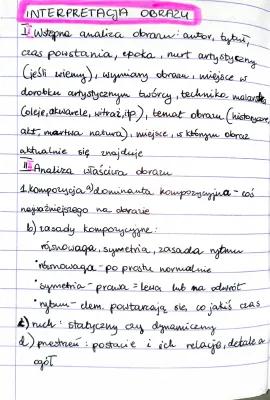 INTERPRETACJA OBRAZU
I Wstępna analiza obrazu: autor, tytuł,
czas powstania, epoka, nurt artystyczny
(jeśli wiemy), wymiary obrazu, miejsce w
dorobku artystycznym twórcy, technika malarska
(oleje, akwarele, witraż, itp), temat obrazu (historyczne,
akt, martwa natura), miejsce, w którym obraz
aktualnie się znajduje
II Analiza właściwa obrazu
1. kompozycja a) dominanta kompozycyjna - coś
najważniejszego na obrazie
b) zasady kompozycyjne:
równowaga, symetria, zasada rytmu
• równowaga - po prostu normalnie
• symetria - prawa = lewa lub na odwrót
• rytum - elem. powtarzają się, co jakiś czas
c) ruch: statyczny czy dynamiczny
d) przestrzeń: postacie i ich relacje, detale a
ogół